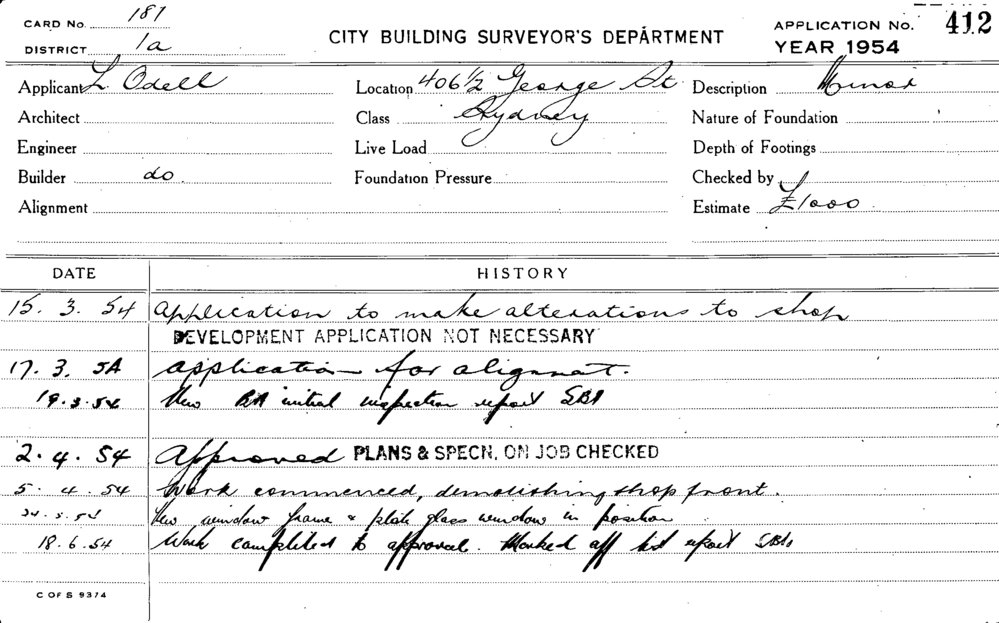 CARD No. 187
DISTRICT 1a
CITY BUILDING SURVEYOR'S DEPARTMENT
APPLICATION No. 412
YEAR 1954
Applicant L. Odell
Location 406 1/2 George St
Description Minor
Architect
Class Sydney
Nature of Foundation
Engineer
Live Load
Depth of Footings
Builder do
Foundation Pressure
Checked by
Alignment
Estimate £1000
DATE HISTORY
15. 3. 54 Application to make alterations to shop
DEVELOPMENT APPLICATION NOT NECESSARY
17. 3. 54 Application for alignmt.
19.3.54 initial inspection report
2. 4. 54 Approved PLANS & SPECN. ON JOB CHECKED
5. 4. 54 Work commenced, demolishing shop front.
New window frame & plate glass window in position
18.6.54 Work completed to approval. Marked off list report
C OF S 9374